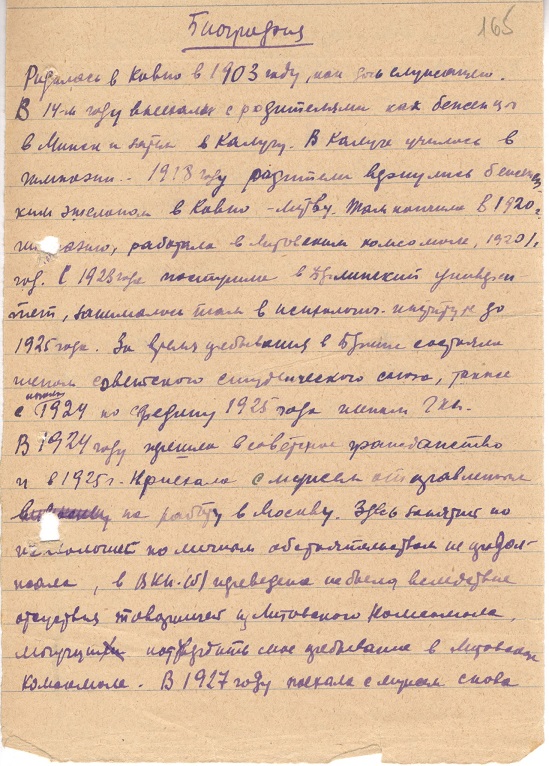 Биография
165
Родилась в Ковно в 1903 году, как дочь служащего.
В 14-м году выехала с родителями как беженцы
в Минск и затем в Калугу. В Калуге училась в
гимназии. 1918 году родители вернулись беженец-
ким эшелоном в Ковно - Литву. Там кончила в 1920 г.
гимназию, работала в Литовском комсомоле, 1920/1
год. С 1923 года поступила в Берлинский универси-
тет, занималась там в психологич. институте до
1925 года. За время пребывания в Берлине состояла
членом советского студенческого союза, также
с 1924 по средину 1925 года членом Г.К.П.
В 1924 году перешла в советское гражданство
и в 1925 г. приехала с мужем отправленным
на работу в Москву. Здесь занятие по
психологией по личным обстоятельствам не продол-
жала, в ВКП(б) переведена не была вследствие
отсутствия товарищей из Литовского комсомола,
могущих подтвердить мое пребывание в Литовском
комсомоле. В 1927 году поехала с мужем снова